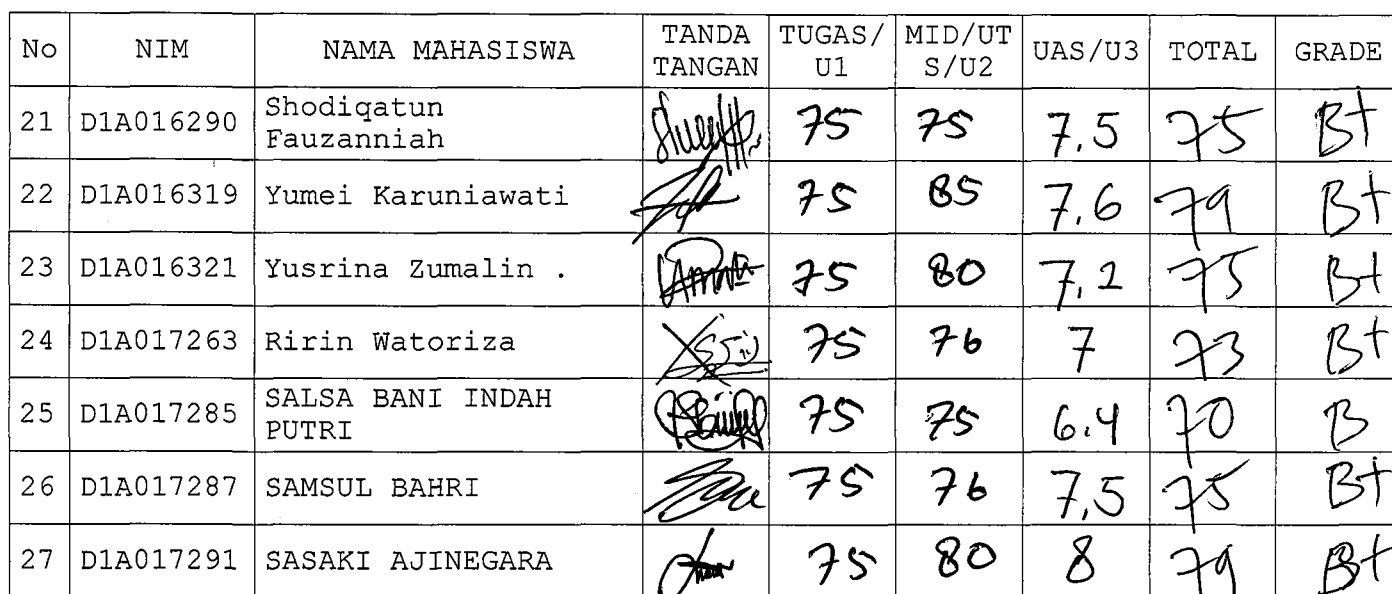 No NIM NAMA MAHASISWA TANDA TANGAN TUGAS/ U1 MID/UT S/U2 UAS/U3 TOTAL GRADE
21 D1A016290 Shodiqatun Fauzanniah 75 75 7.5 75 B+
22 D1A016319 Yumei Karuniawati 75 85 7.6 79 B+
23 D1A016321 Yusrina Zumalin . 75 80 7,2 75 B+
24 D1A017263 Ririn Watoriza 75 76 7 73 B+
25 D1A017285 SALSA BANI INDAH PUTRI 75 75 6.4 70 B
26 D1A017287 SAMSUL BAHRI 75 76 7,5 75 B+
27 D1A017291 SASAKI AJINEGARA 75 80 8 79 B+